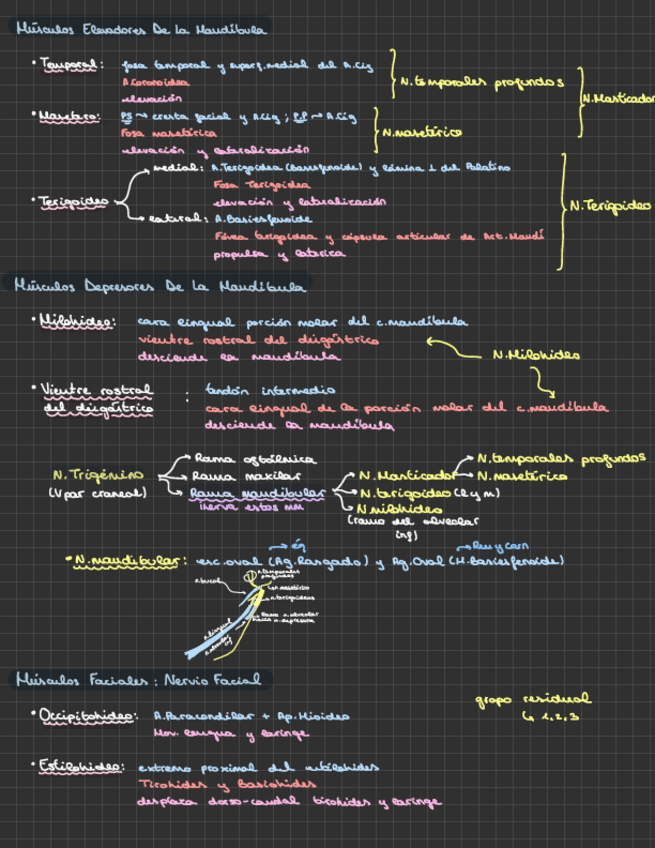 Músculos Elevadores De La Mandíbula
• Temporal: fosa temporal y superf.medial del A.Cig
A.Coronoidea
elevación
N.temporales profundos
• Masetero: PS → cresta facial y A.Cig; P.P → A.Cig
Fosa masetérica
elevación y lateralización
N.masetérico
N.Masticador
• Terigoideo
medial: A.Terigoidea (Basiesfenoide) y lámina ⊥ del Palatino
Fosa Terigoidea
elevación y lateralización
lateral: A.Basiesfenoide
Fóvea terigoidea y cápsula articular de Art.Mandí
propulsa y lateriza
N.Terigoideo
Músculos Depresores De La Mandíbula
• Milohideo: cara lingual porción molar del c.mandíbula
vientre rostral del deigástrico
desciende la mandíbula
N.Milohideo
• Vientre rostral del deigástrico : tendón intermedio
cara lingual de la porción molar del c.mandíbula
desciende la mandíbula
N.Trigémino
(V par craneal)
Rama oftálmica
Rama maxilar
Rama mandibular
inerva estos mm
N.Masticador
N.temporales profundos
N.masetérico
N.terigoideo (l y m)
N.milohideo
(ramo del alveolar
inf)
• N.mandibular: esc.oval (Ag.Rasgado) y Ag.Oval (H.Basiesfenoide)
→ éq
→ Ru y carn
n.bucal
n.temporales
profundos
n.masetérico
n.terigoideos
n.lingual
n.alveolar
inf
Músculos Faciales: Nervio Facial
• Occipitohideo: A.Paracondilar + Ap.Hioideo
Mov. lengua y laringe
grupo residual
↳ 1,2,3
• Estilohideo: extremo proximal del estilohides
Tirohides y Basiohides
desplaza dorso-caudal tirohides y laringe